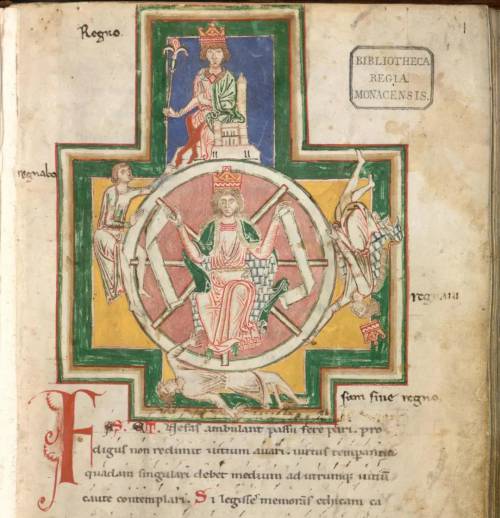 Regno.
1
BIBLIOTHECA
REGIA
MONACENSIS.
regnabo
regnaui
sum sine regno.
FAS. ET. Nefas ambulant passu fere pari. pro
digus non redimit uitium auari. uirtus temperantia
quadam singulari debet medium ad utrumque uitiū
caute contemplari. Si legisse memoras ethicam ca